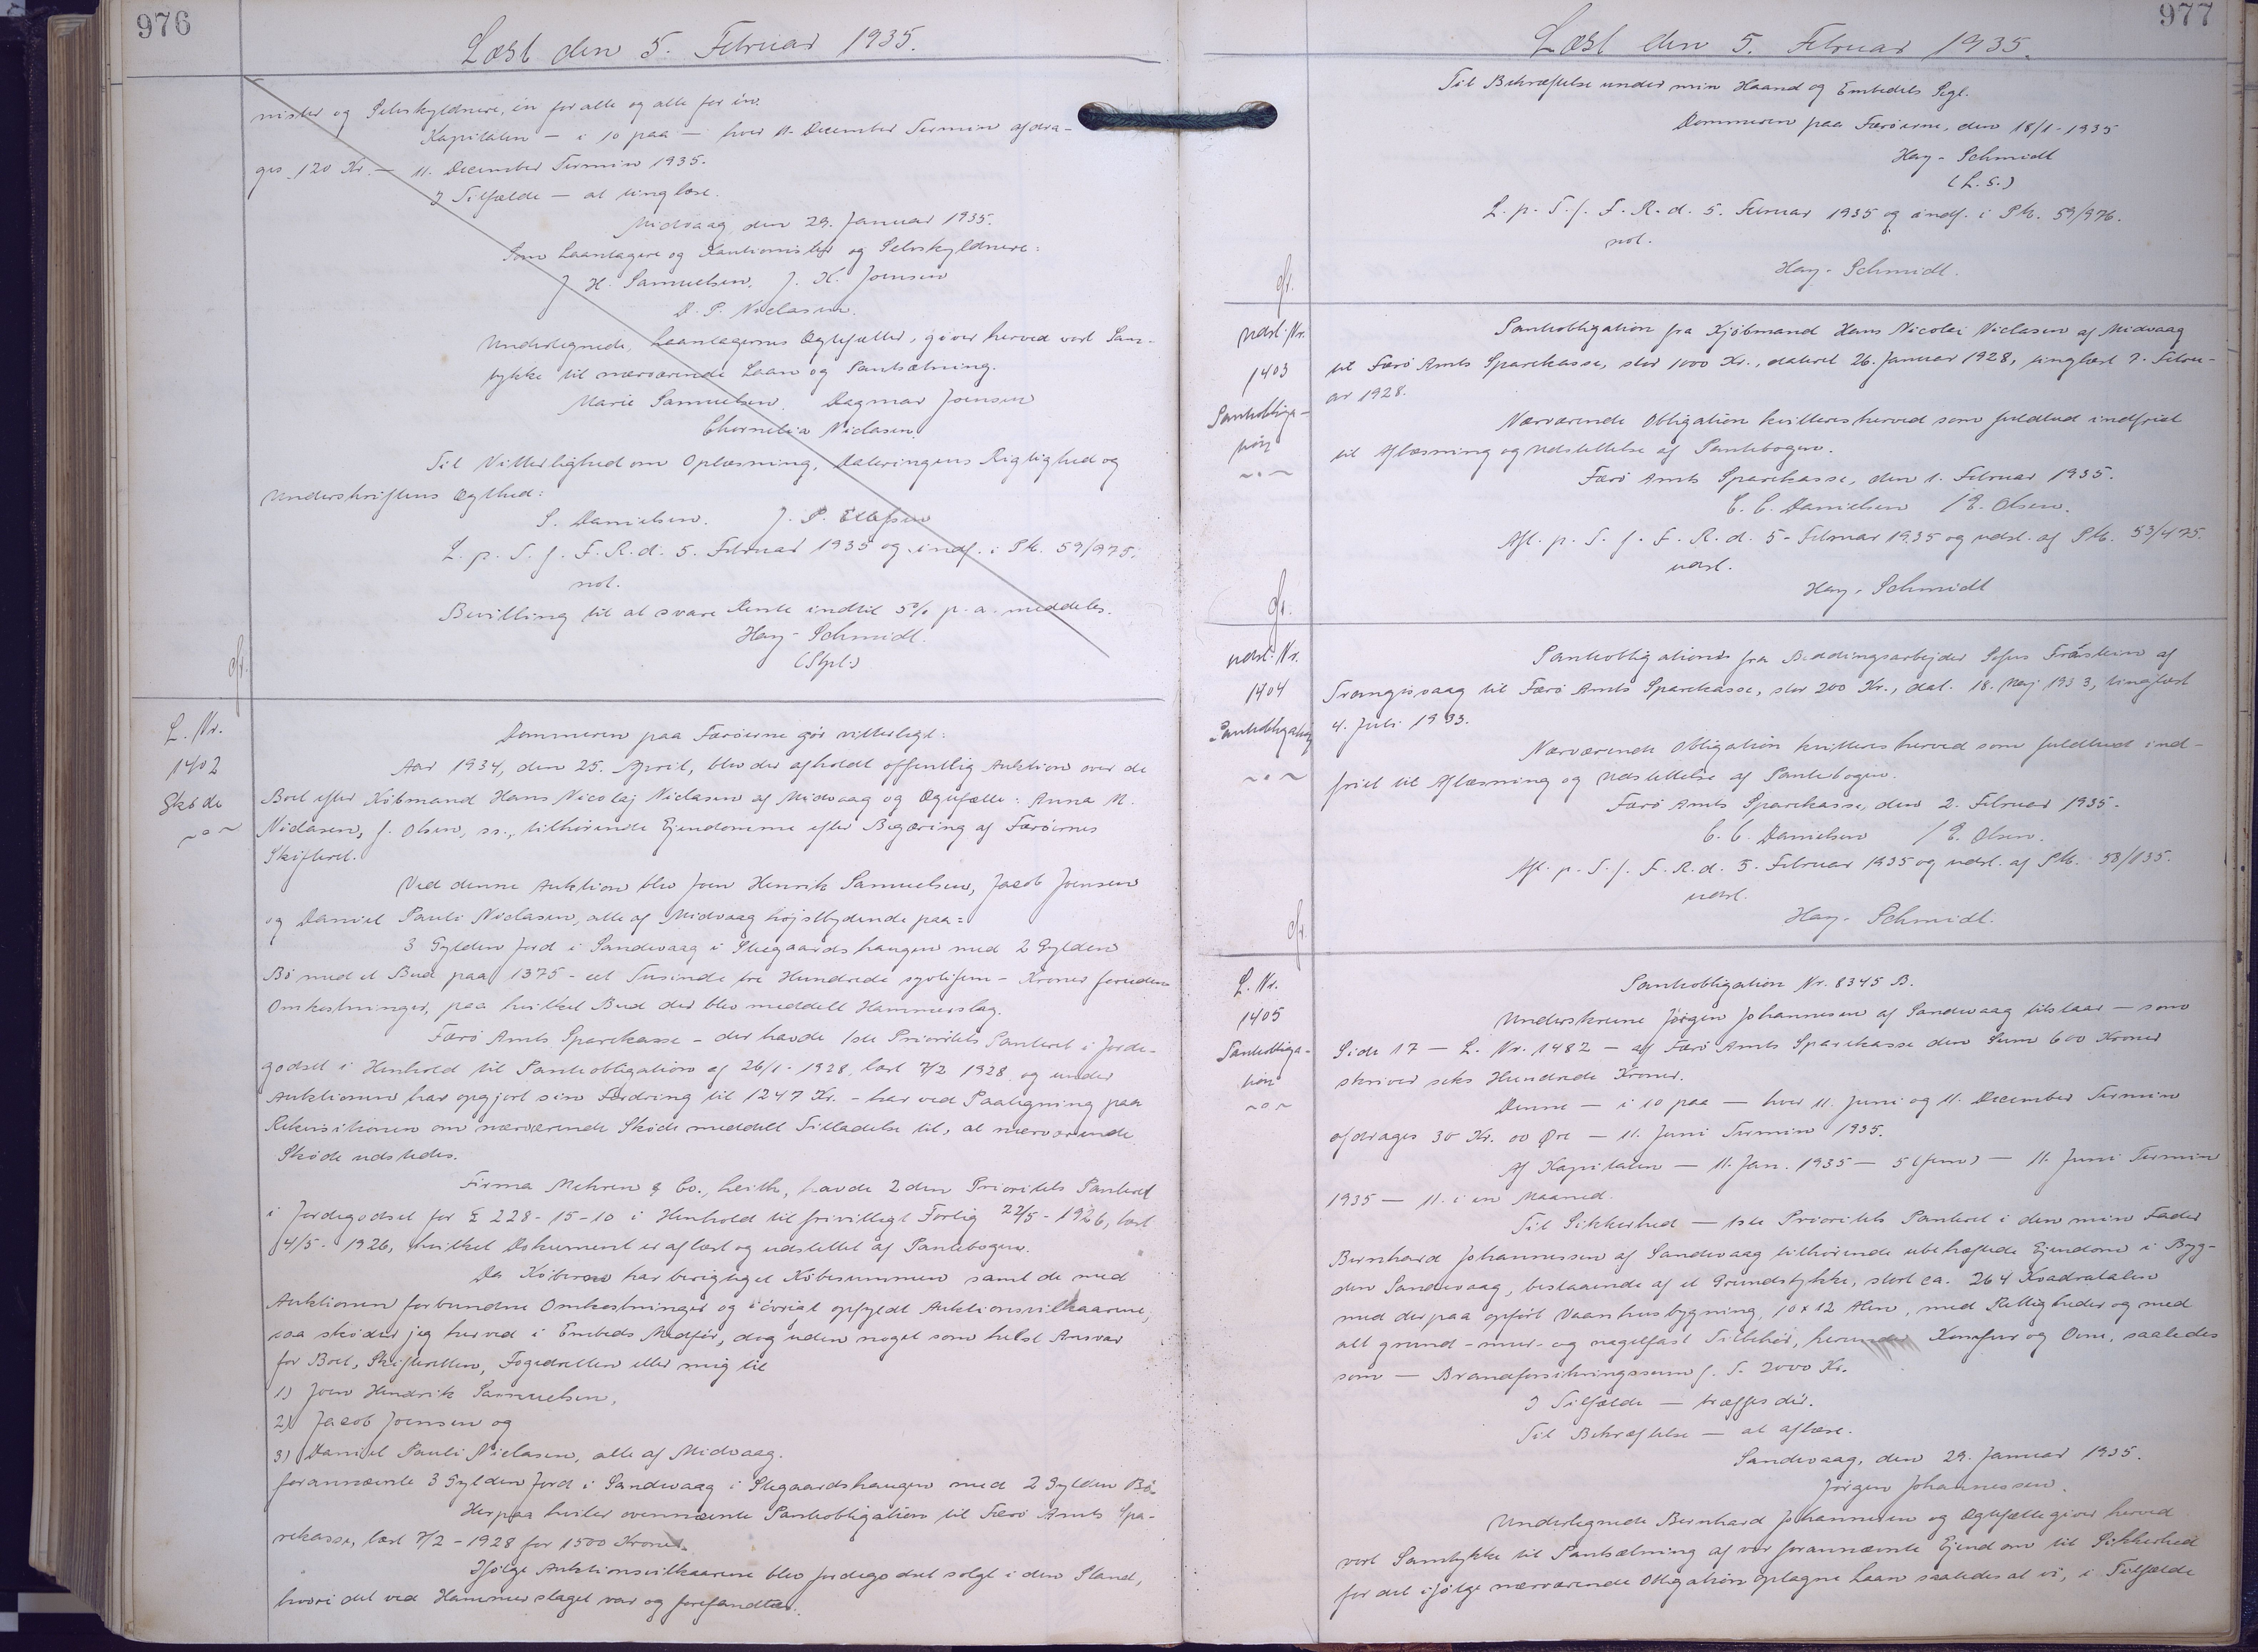 976
Læst den 5. Februar 1935.
nister og Selvskyldnere, en for alle og alle for en.
Kapitalen — i 10 paa — hver 11. December Termin afdra-
ges 120 Kr. — 11. December Termin 1935.
I Tilfælde — at tinglæse.
Midvaag, den 29. Januar 1935.
Som Laantagere og Kautionister og Selvskyldnere:
J. H. Samuelsen, J. K. Joensen
D. P. Niclasen.
Undertegnede, Laantagernes Ægtefæller, giver herved vort Sam-
tykke til nærværende Laan og Pantsætning.
Marie Samuelsen. Dagmar Joensen
Chornelia Niclasen.
Til Vitterlighed om Oplæsning, Dateringens Rigtighed og
Underskriftens Ægthed:
S. Danielsen. J. P. Ellefsen
L. p. T. f. F. R. d. 5. Februar 1935 og indf. i Pb. 59/975.
not.
Bevilling til at svare Rente indtil 5% p. a. meddeles.
Hay-Schmidt.
(Stpl.)
gr.
L. Nr.
1402
Skøde
Dommeren paa Færøerne gør vitterligt:
Aar 1934, den 25. April, blev der afholdt offentlig Auktion over de
Boet efter Købmand Hans Nicolaj Niclasen af Midvaag og Ægtefælle: Anna M.
Niclasen, f. Olsen, ss., tilhørende Ejendomme efter Begæring af Færøernes
Skifteret.
Ved denne Auktion blev Joen Henrik Samuelsen, Jacob Joensen
og Daniel Pauli Niclasen, alle af Midvaag højstbydende paa:
3 Gylden Jord i Sandevaag i Stegaards haugen med 2 Gylden
Bø med et Bud paa 1375 - et Tusinde tre Hundrede syvtifem - Kroner foruden
Omkostninger, paa hvilket Bud der blev meddelt Hammerslag.
Færø Amts Sparekasse - der havde 1ste Prioritets Panteret i Jorde-
godset i Henhold til Pantobligation af 26/1 - 1928, læst 7/2 1928 og under
Auktionen har opgjort sin Fordring til 1247 Kr. - har ved Paategning paa
Rekvisitionen om nærværende Skøde meddelt Tilladelse til, at nærværende
Skøde udstedes.
Firma Mehren & Co., Leith, havde 2den Prioritets Panteret
i Jordegodset for £ 228-15-10 i Henhold til frivilligt Forlig 22/5 - 1926, læst
4/5 - 1926, hvilket Dokument er aflæst og udslettet af Pantebogen.
Da Køberne har berigtiget Købesummen samt de med
Auktionen forbundne Omkostninger og iøvrigt opfyldt Auktionsvilkaarene,
saa skøder jeg herved i Embeds Medfør, dog uden noget som helst Ansvar
for Boet, Skifteretten, Fogedretten eller mig til
1) Joen Hendrik Samuelsen,
2) Jacob Joensen og
3) Daniel Pauli Niclasen, alle af Midvaag.
forannævnte 3 Gylden Jord i Sandevaag i Stegaardshaugen med 2 Gylden Bø.
Herpaa hviler ovennævnte Pantobligation til Færø Amts Spa-
rekasse, læst 7/2 - 1928 for 1500 Kroner.
Ifølge Auktionsvilkaarene blev Jordegodset solgt i den Stand,
hvori det ved Hammerslaget var og forefandtes.
977
Læst den 5. Februar 1935.
Til Bekræftelse under min Haand og Embedets Segl.
Dommeren paa Færøerne, den 18/1 - 1935
Hay-Schmidt
(L. S.)
L. p. T. f. F. R. d. 5. Februar 1935 og indf. i Pb. 59/976.
not.
Hay-Schmidt.
gr.
Udsl. Nr.
1403
Pantobliga-
tion
Pantobligation fra Kjøbmand Hans Nicolai Niclasen af Midvaag
til Færø Amts Sparekasse, stor 1000 Kr., dateret 26. Januar 1928, tinglæst 7. Febru-
ar 1928.
Nærværende Obligation kvitteres herved som fuldtud indfriet
til Aflæsning og Udslettelse af Pantebogen.
Færø Amts Sparekasse, den 1. Februar 1935.
C. C. Danielsen / E. Olsen.
Afl. p. T. f. F. R. d. 5. Februar 1935 og udsl. af Pb. 53/475.
udsl.
Hay-Schmidt
gr.
Udsl. Nr.
1404
Pantobligation
Pantobligation fra Beddingsarbejder Sofus Trástein af
Trangisvaag til Færø Amts Sparekasse, stor 200 Kr., dat. 18. Maj 1933, tinglæst
4. Juli 1933.
Nærværende Obligation kvitteres herved som fuldtud ind-
friet til Aflæsning og Udslettelse af Pantebogen.
Færø Amts Sparekasse, den 2. Februar 1935.
C. C. Danielsen / E. Olsen.
Afl. p. T. f. F. R. d. 5. Februar 1935 og udsl. af Pb. 58/135.
udsl.
Hay-Schmidt.
gr.
L. Nr.
1405
Pantobliga-
tion
Pantobligation Nr. 8345 B.
Underskrevne Jørgen Johannesen af Sandevaag tilstaar — som
Side 17 — L. Nr. 1482 — af Færø Amts Sparekasse den Sum 600 Kroner
skriver seks Hundrede Kroner.
Denne — i 10 paa — hver 11. Juni og 11. December Termin
afdrages 30 Kr. 00 Øre — 11. Juni Termin 1935.
Af Kapitalen — 11. Jan. 1935 — 5 (fem) — 11. Juni Termin
1935 — 11. i en Maaned.
Til Sikkerhed — 1ste Prioritets Panteret i den min Fader
Bernhard Johannessen af Sandevaag tilhørende ubehæftede Ejendom i Byg-
den Sandevaag, bestaaende af et Grundstykke, stort ca. 264 Kvadratalen
med derpaa opført Vaanhusbygning, 10 x 12 Alen, med Rettigheder og med
alt grund-mur- og nagelfast Tilbehør, herunder Komfur og Ovne, saaledes
som — Brandforsikringssum f. T. 2000 Kr.
I Tilfælde — træffes dér.
Til Bekræftelse — at aflæse.
Sandevaag, den 29. Januar 1935.
Jørgen Johannessen.
Undertegnede Bernhard Johannesen og Ægtefælle giver herved
vort Samtykke til Pantsætning af vor forannævnte Ejendom til Sikkerhed
for det ifølge nærværende Obligation optagne Laan saaledes at vi, i Tilfælde